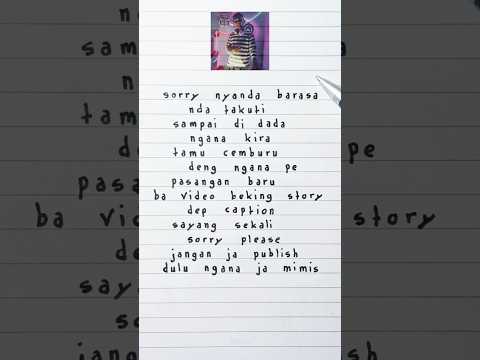 sorry nyanda barasa
nda takuti
sampai di dada
ngana kira
tamu cemburu
deng ngana pe
pasangan baru
ba video beking story
dep caption
sayang sekali
sorry please
jangan ja publish
dulu ngana ja mimis